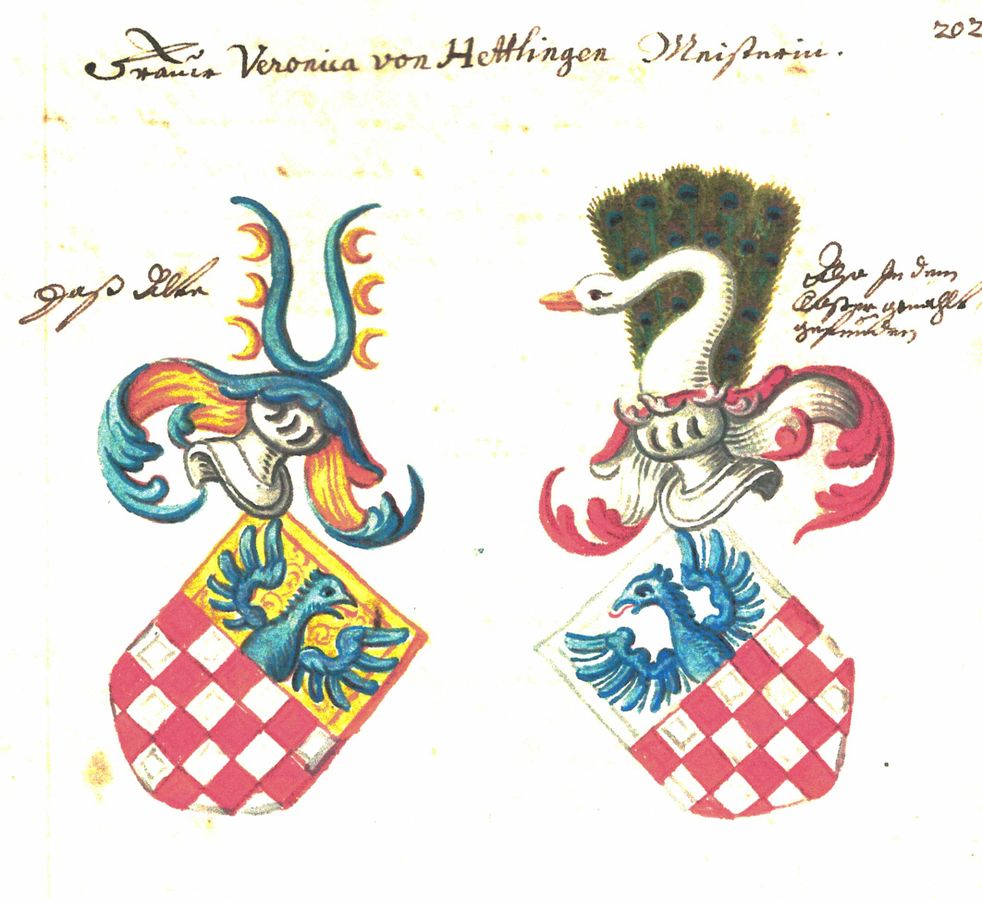 202
Frauw Veronica von Hettlingen Meisterin.
Daß Alte
Also In dem
Closter gemahlt
gefunden